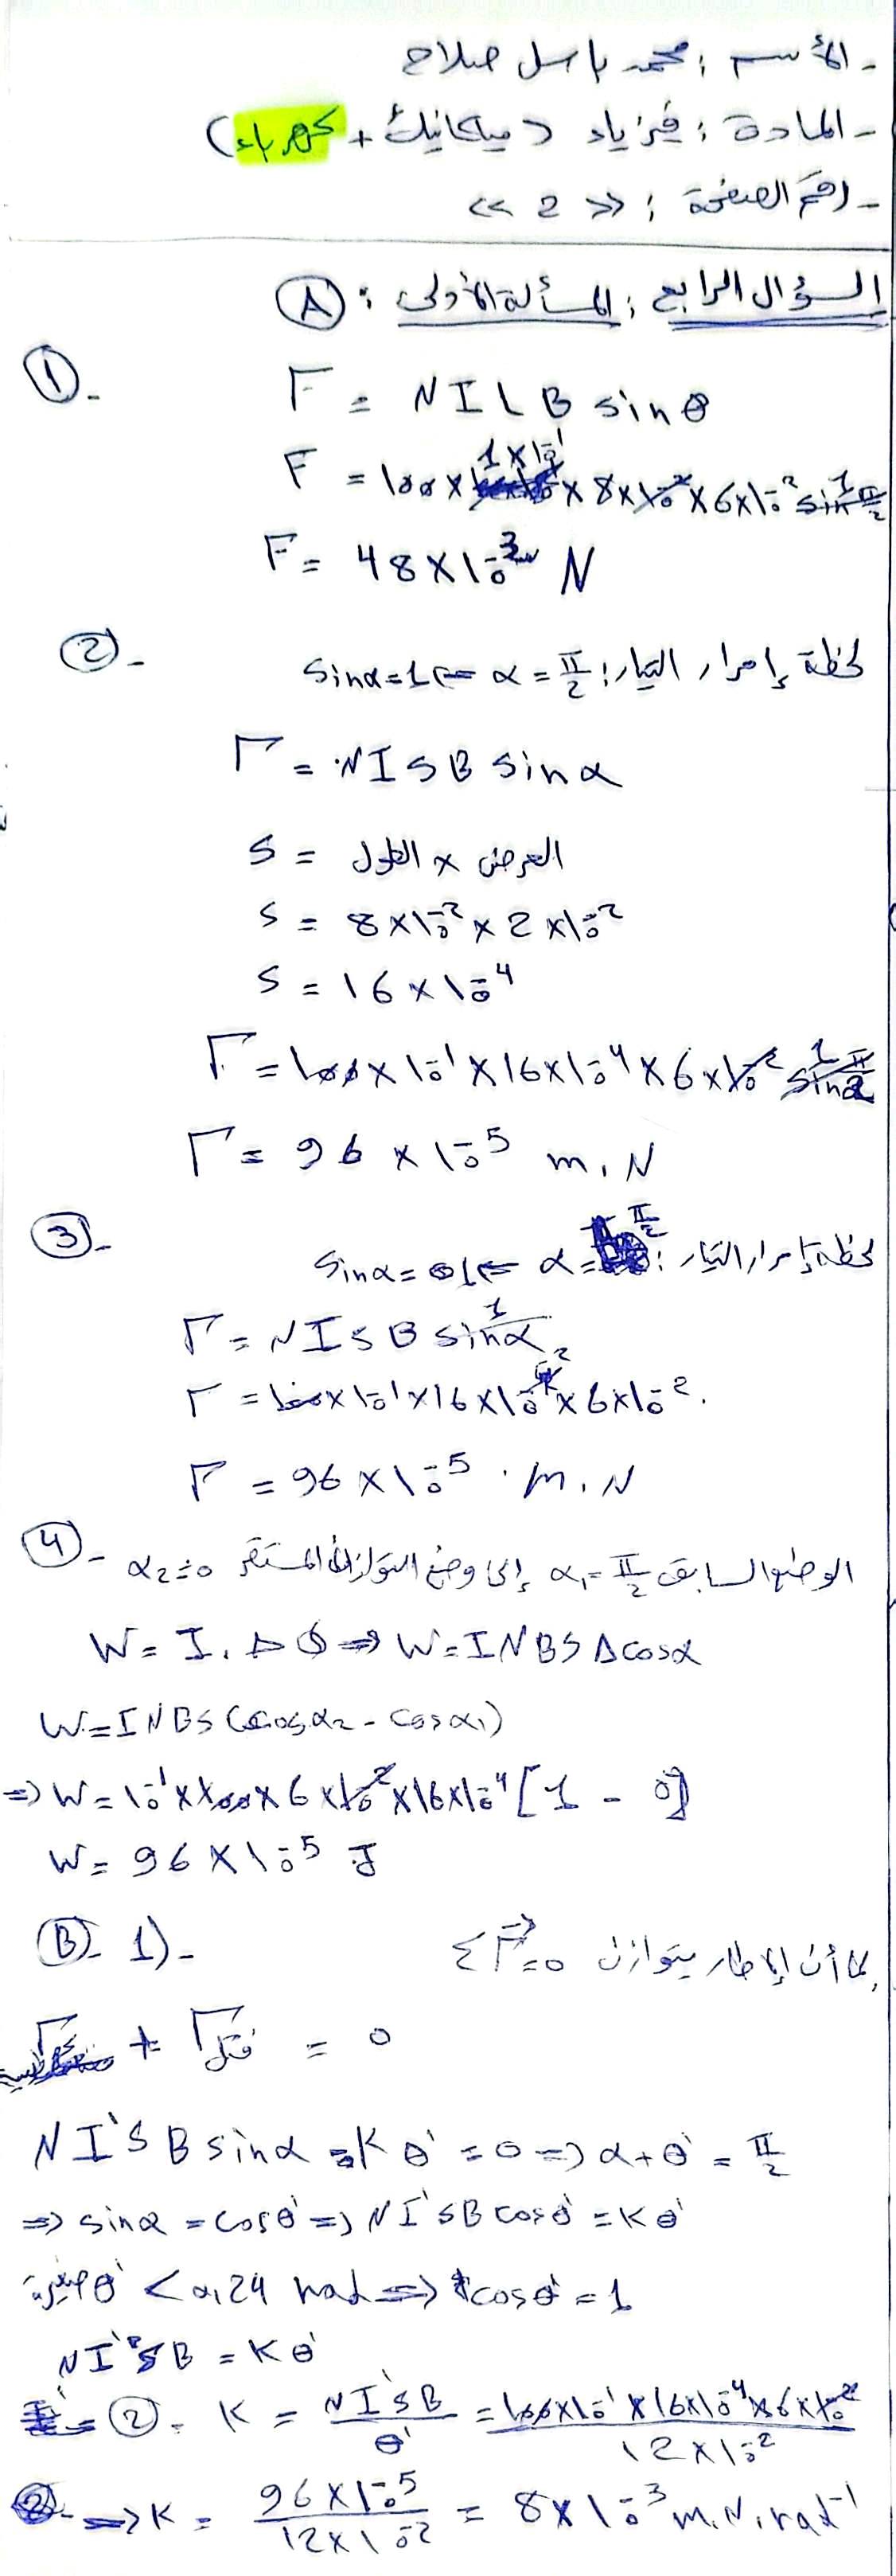 - الأسم : محمد باسل صلاح
- المادة : فيزياء (ميكانيك + كهرباء)
- رقم الصفحة : << 2 >>
السؤال الرابع : المسألة الأولى : A
1- F = N I L B sin θ
F = 100 × 1×10⁻¹ × 8×10⁻² × 6×10⁻² sin π/2 1
F = 48×10⁻³ N
2- لحظة إمرار التيار : α = π/2 ⇐ sinα = 1
Γ = N I S B sin α
S = الطول × العرض
S = 8×10⁻² × 2×10⁻²
S = 16×10⁻⁴
Γ = 100×10⁻¹×16×10⁻⁴×6×10⁻² sin π/2 1
Γ = 96 × 10⁻⁵ m.N
3- لحظة إمرار التيار : α = π/2 ⇐ sinα = 1
Γ = N I S B sinα 1
Γ = 100×10⁻¹×16×10⁻²×6×10⁻².
Γ = 96×10⁻⁵ . m.N
4- الوضع السابق α₁ = π/2 إلى وضع التوازن المستقر α₂ = 0
W = I . ΔΦ ⇒ W = I N B S Δcosα
W = I N B S (cos α₂ - cos α₁)
⇒ W = 10⁻¹×100×6×10⁻²×16×10⁻⁴ [1 - 0]
W = 96×10⁻⁵ J
B- 1)- بما أن الإطار يتوازن ΣΓ⃗ = 0
Γ + Γ فتل = 0
N I' S B sinα - K θ' = 0 ⇒ α + θ' = π/2
⇒ sinα = cosθ' ⇒ N I' S B cosθ' = K θ'
θ' صغيرة < 0,24 rad ⇒ cosθ' = 1
N I' S B = K θ'
2- K = N I' S B / θ' = 100×10⁻¹×16×10⁻⁴×6×10⁻² / 12×10⁻²
⇒ K = 96×10⁻⁵ / 12×10⁻² = 8×10⁻³ m.N.rad⁻¹